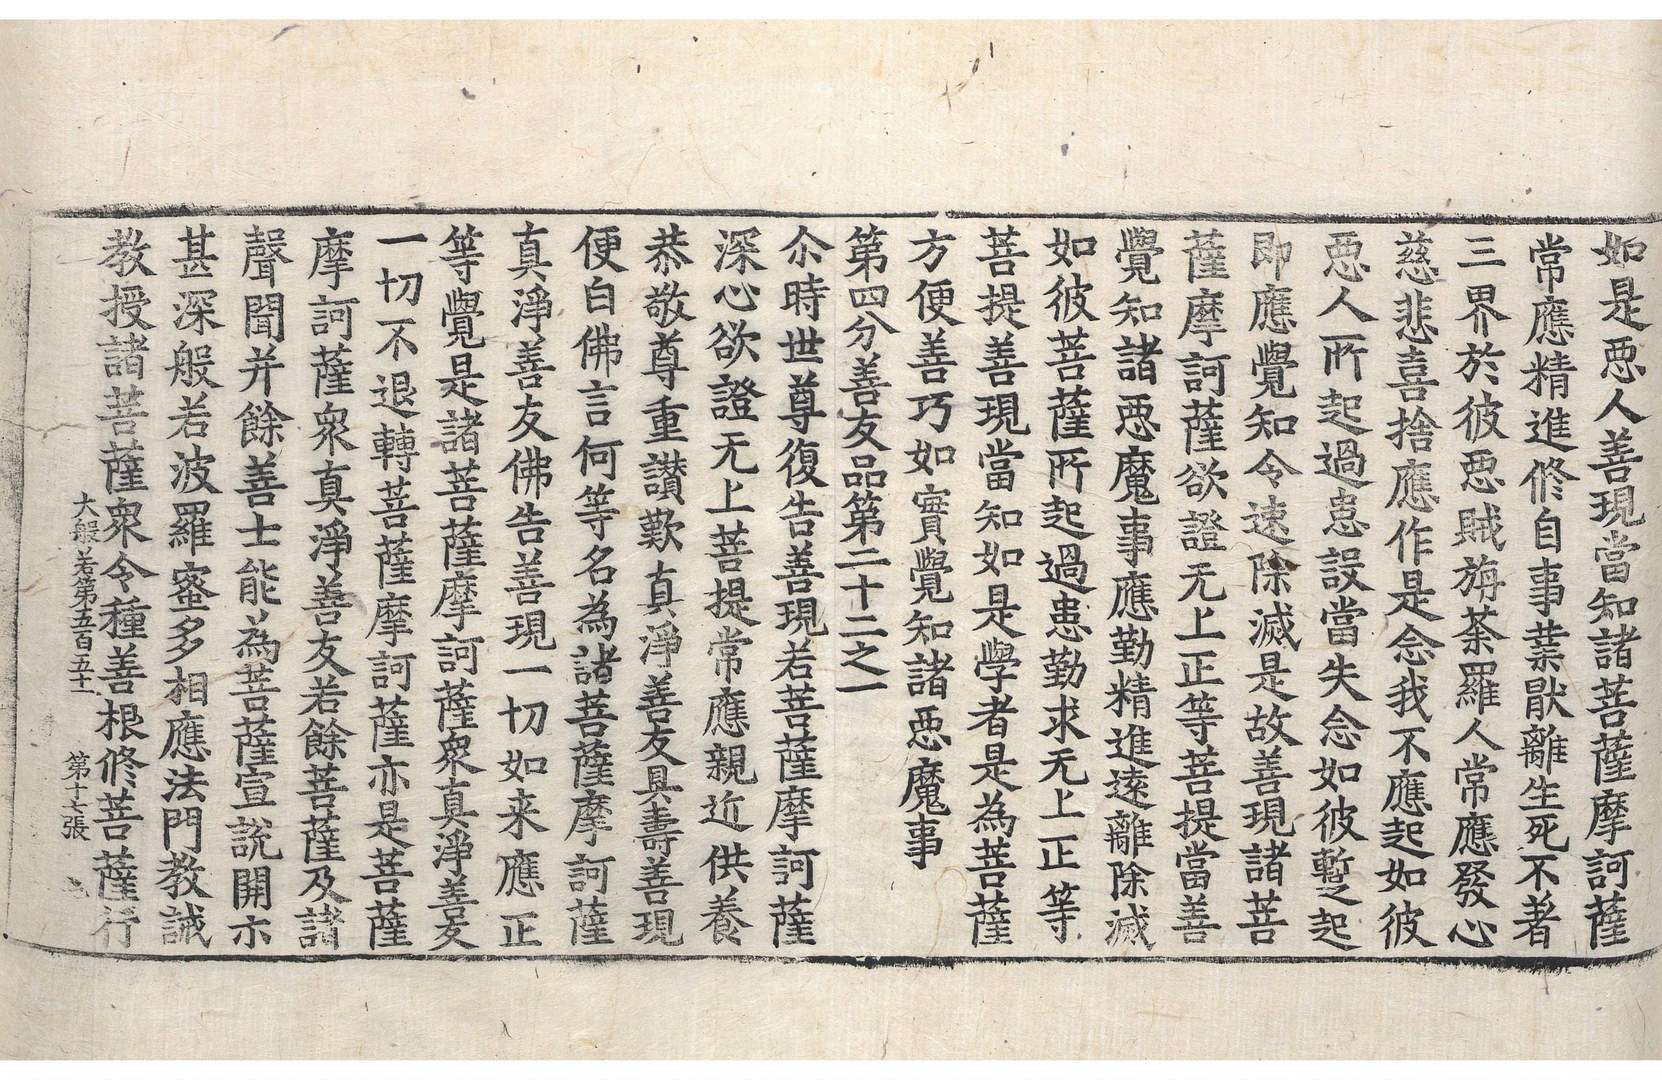 如是惡人善現當知諸菩薩摩訶薩
常應精進修自事業猒離生死不著
三界於彼惡賊旃荼羅人常應發心
慈悲喜捨應作是念我不應起如彼
惡人所起過患設當失念如彼蹔起
即應覺知令速除滅是故善現諸菩
薩摩訶薩欲證无上正等菩提當善
覺知諸惡魔事應勤精進遠離除滅
如彼菩薩所起過患勤求无上正等
菩提善現當知如是學者是為菩薩
方便善巧如實覺知諸惡魔事
第四分善友品第二十二之一
尒時世尊復告善現若菩薩摩訶薩
深心欲證无上菩提常應親近供養
恭敬尊重讃歎真淨善友具壽善現
便白佛言何等名為諸菩薩摩訶薩
真淨善友佛告善現一切如来應正
等覺是諸菩薩摩訶薩衆真淨善友
一切不退轉菩薩摩訶薩亦是菩薩
摩訶薩衆真淨善友若餘菩薩及諸
聲聞并餘善士能為菩薩宣說開示
甚深般若波羅蜜多相應法門教誡
教授諸菩薩衆令種善根修菩薩行
大般若第五百五十一　第十七張